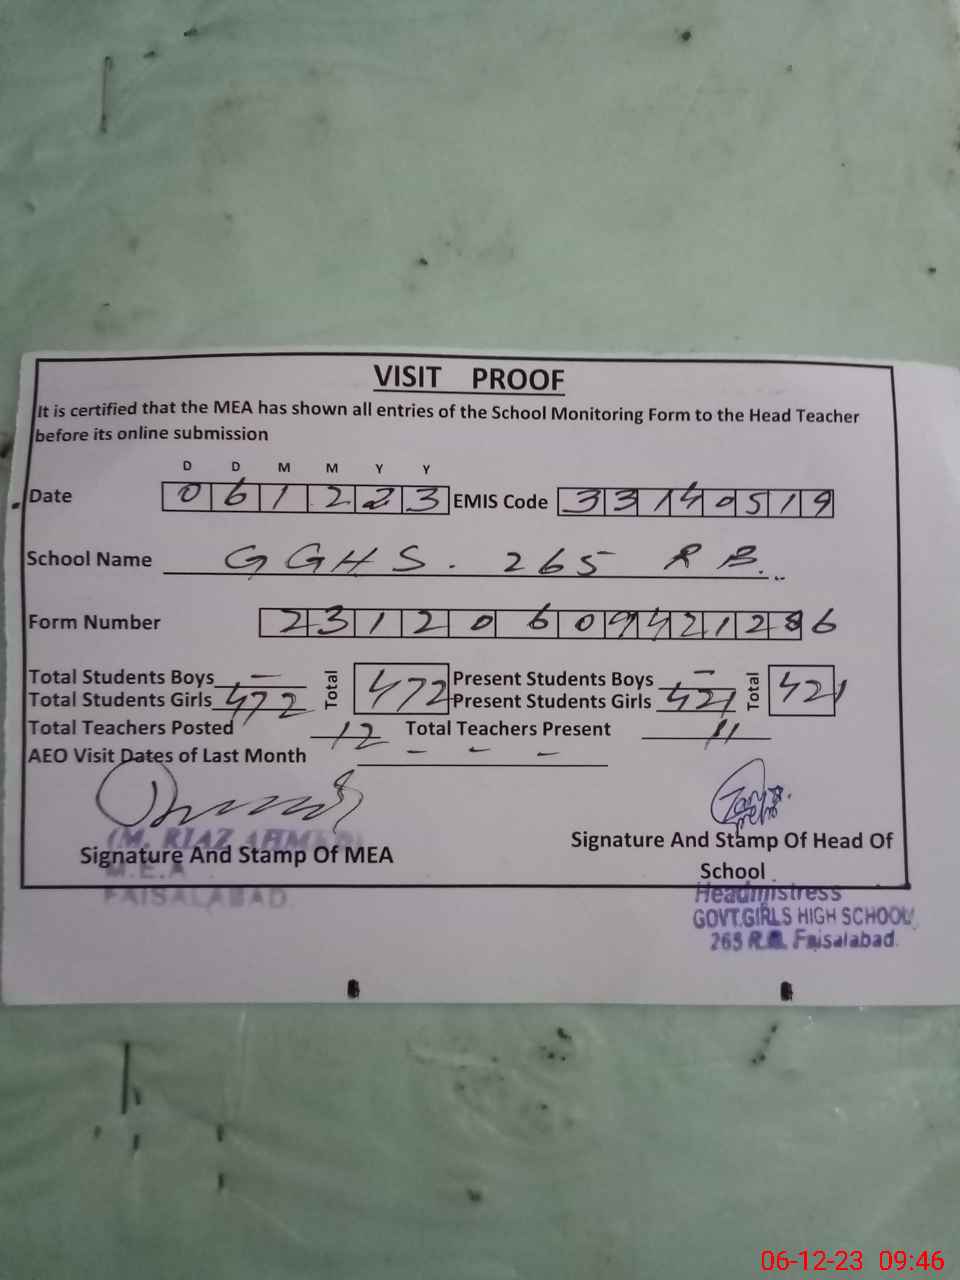 VISIT PROOF
It is certified that the MEA has shown all entries of the School Monitoring Form to the Head Teacher
before its online submission
D D M M Y Y
Date 0 6 1 2 2 3 EMIS Code 3 3 1 4 0 5 1 9
School Name GGHS. 265 RB.
Form Number 2 3 1 2 0 6 0 9 4 2 1 2 6
Total Students Boys — Total 472 Present Students Boys — Total 421
Total Students Girls 472 Present Students Girls 421
Total Teachers Posted 12 Total Teachers Present 11
AEO Visit Dates of Last Month – – –
(M. RIAZ AHMED)
Signature And Stamp Of MEA
M.E.A
FAISALABAD
Signature And Stamp Of Head Of
School
Headmistress
GOVT.GIRLS HIGH SCHOOL
265 R.B. Faisalabad.
06-12-23 09:46